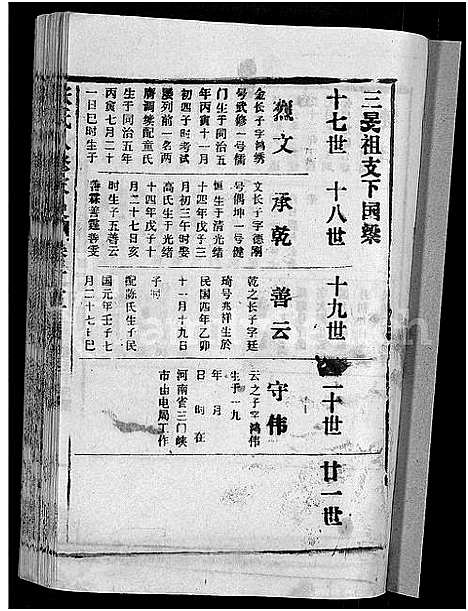 三吴祖支下国繁
十七世 十八世 十九世 二十世 廿一世
烈文
金长子字鸿绣
号武修一号儒
门生于同治五
年丙寅十一月
初四子时考试
屡列前一名两
膺调续配童氏
生于同治五年
丙寅七月二十
一日巳时生子
承乾
文长子字德刚
号偶坤一号健
恒生于清光绪
十四年戊子十
月初三午时娶
高氏生于光绪
十四年戊子十
月二十七日亥
时生子五善云
善霖善霆善雯
善云
乾之长子字廷
琦号兆祥生於
民国四年乙卯
十一月十九日
子时
配陈氏生于民
国元年壬子七
月二十七生巳
守伟
云之子字鸿伟
生于一九
年 月
日 时在
河南省三门峡
市由电局工作